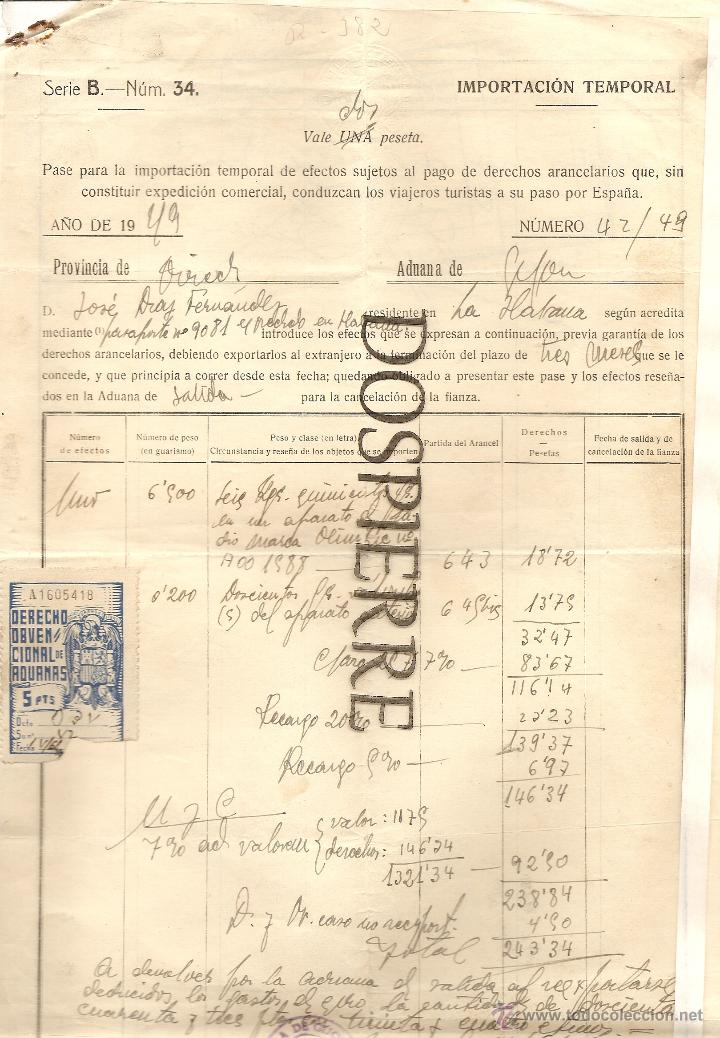 02-382
Serie B.—Núm. 34.
IMPORTACIÓN TEMPORAL
dos
Vale UNA peseta.
Pase para la importación temporal de efectos sujetos al pago de derechos arancelarios que, sin
constituir expedición comercial, conduzcan los viajeros turistas a su paso por España.
AÑO DE 1949
NÚMERO 42/49
Provincia de Oviedo
Aduana de Gijon
D. José Diaz Fernández residente en La Habana según acredita
mediante (1) pasaporte nº 9081 en Habana introduce los efectos que se expresan a continuación, previa garantía de los
derechos arancelarios, debiendo exportarlos al extranjero a la terminación del plazo de tres meses que se le
concede, y que principia a correr desde esta fecha; quedando obligado a presentar este pase y los efectos reseña-
dos en la Aduana de salida — para la cancelación de la fianza.
Número de efectos
Número de peso (en guarismo)
Peso y clase (en letra) Circunstancia y reseña de los objetos que se importen
Partida del Arancel
Derechos — Pesetas
Fecha de salida y de cancelación de la fianza
Uno 6'500 Seis Kgs. quinientos gs.
en un aparato de Ra-
dio marca Olimpic nº
A00 1988 — 643 18'72
0'200 Doscientos gs.
(5) del aparato 645 bis 13'75
32'47
7%0 — 83'67
116'14
Recargo 20%0 23'23
139'37
Recargo 5%0 — 6'97
146'34
7%0 ad valorem
valor: 1175
derechos: 146'34
1321'34 — 92'50
238'84
D. y Ob. caso no reexport. 4'50
Total 243'34
A devolver por la aduana de salida al reexportarse
deducidos los gastos de giro la cantidad de doscientas
cuarenta y tres ptas treinta y cuatro ctmos. =
A1605418
DERECHO
OBVEN
CIONAL DE
ADUANAS
5 PTS
DOSPIERRE
todocoleccion.net